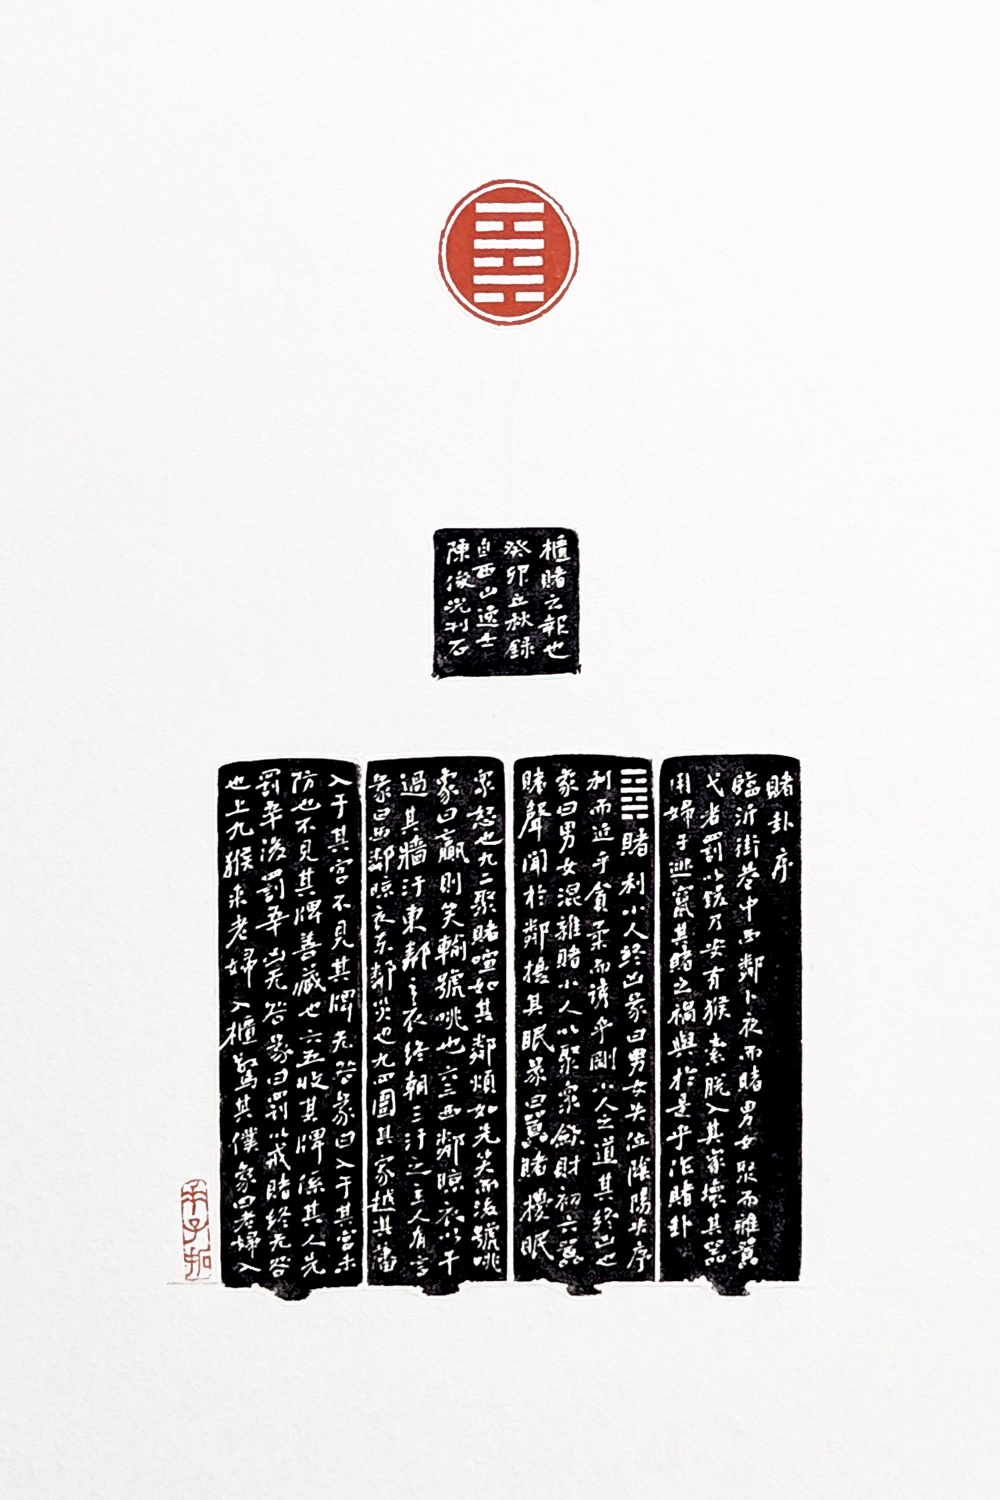 賭卦序
臨沂街巷中西鄰卜夜而賭男女聚而雜囂
者罰以錢乃安有猴索脫入其家壞其器
婦于逃竄其賭之禍與於是乎作賭卦
䷿賭利小人終凶彖曰男女失位陰陽失序
利而迫乎貪柔而誘乎剛小人之道其終凶也
象曰男女混雜賭小人以聚眾斂財初六囂
賭聲聞於鄰擾其眠象曰囂賭擾眠
眾怒也九二聚賭喧如其鄰煩如先笑而後號咷
象曰贏則笑輸號咷也六三西鄰晾衣以干
過其牆汙東鄰之衣終朝三汙之主人有言
象曰西鄰晾衣東鄰災也九四圍其家越其藩
入于其宮不見其牌无咎象曰入于其宮未
防也不見其牌善藏也六五收其牌係其人先
罰辛後罰辛凶无咎象曰罰以戒賭終无咎
也上九猴來老婦入櫃驚其僕象曰老婦入
櫃賭之報也
癸卯立秋錄
自西山逸士
陳俊光刊石